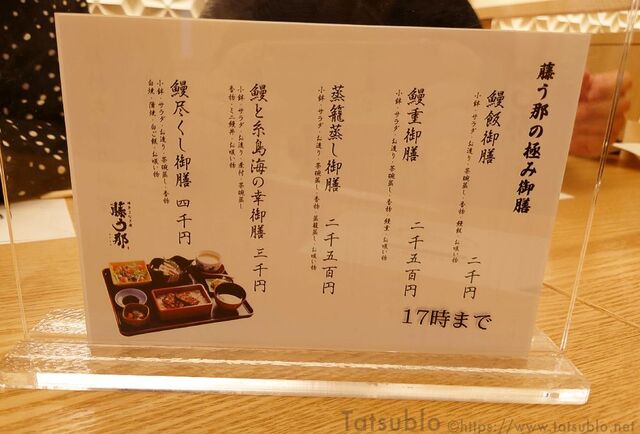 藤う那の極み御膳
鰻飯御膳 二千円
小鉢・サラダ・お造り・茶碗蒸し・香物・鰻飯・お吸い物
鰻重御膳 二千五百円
小鉢・サラダ・お造り・茶碗蒸し・香物・鰻重・お吸い物
蒸籠蒸し御膳 二千五百円
小鉢・サラダ・お造り・茶碗蒸し・香物・蒸籠蒸し・お吸い物
鰻と糸島海の幸御膳 三千円
小鉢・サラダ・お造り・煮付・茶碗蒸し
香物・ミニ鰻丼・お吸い物
鰻尽くし御膳 四千円
小鉢・サラダ・お造り・茶碗蒸し・香物
白焼・蒲焼・白ご飯・お吸い物
藤う那
17時まで
Tatsublo ©https://www.tatsublo.net